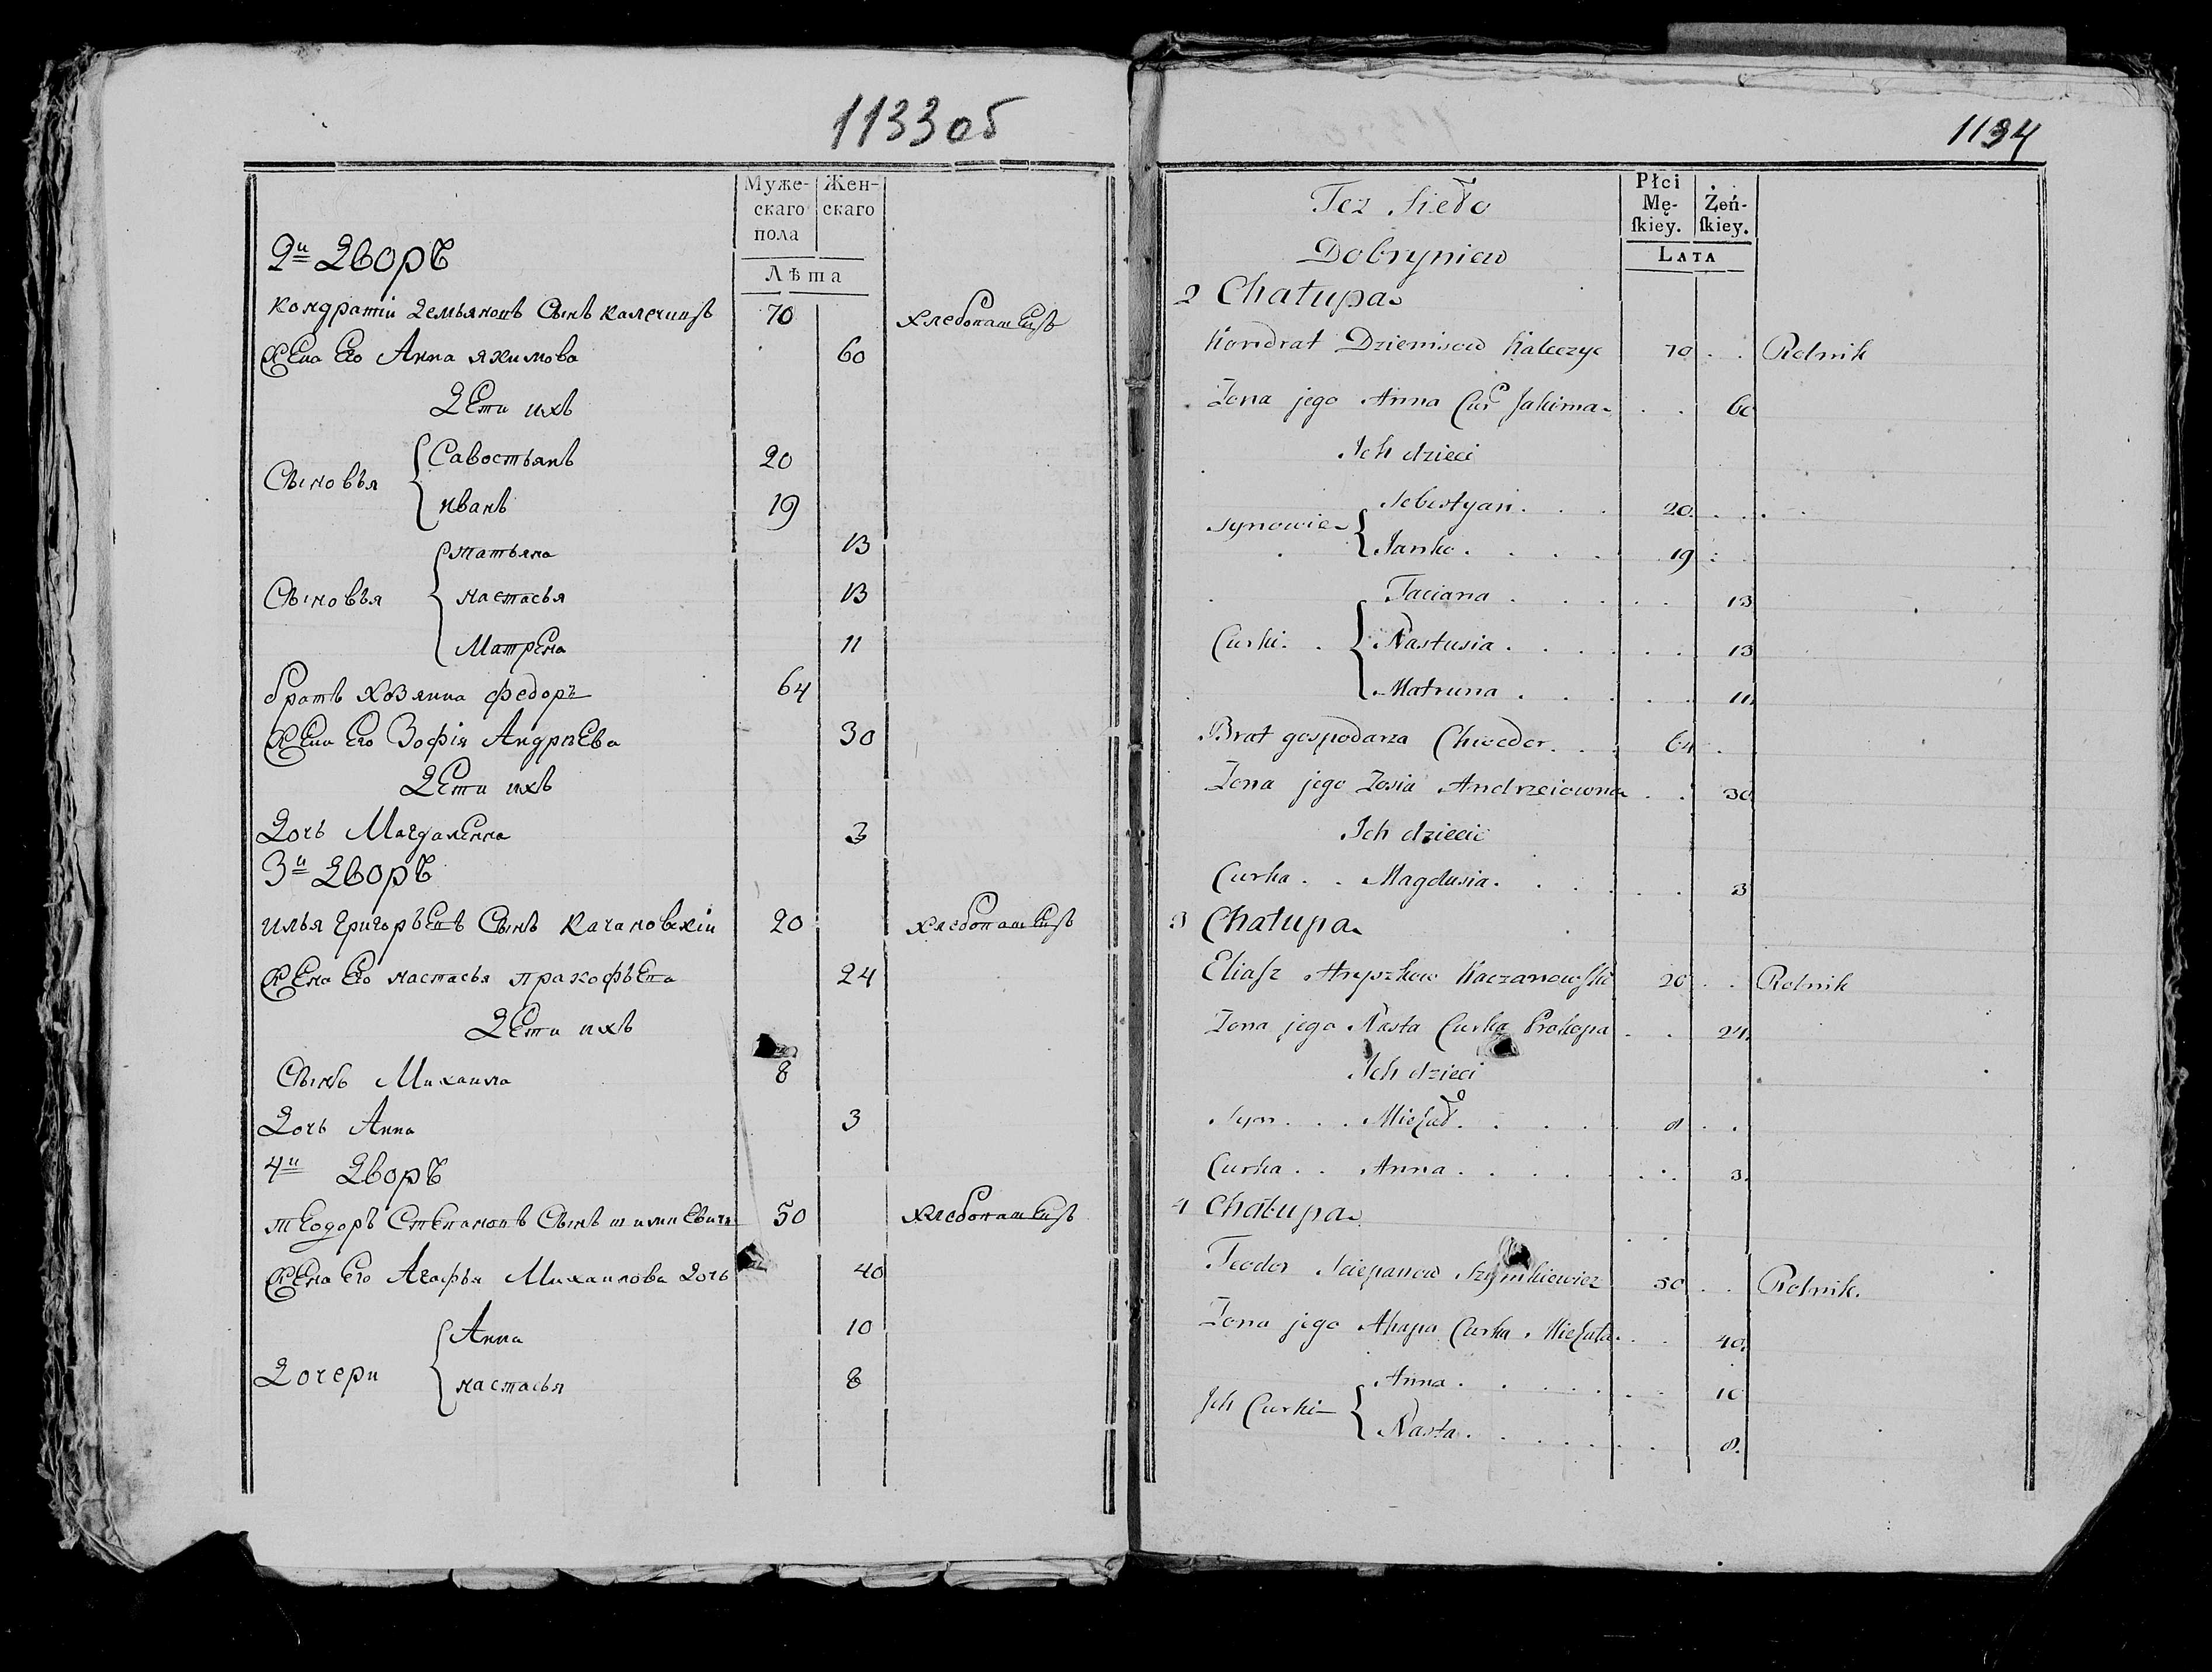 1133 об
Муже-
скаго
пола
Жен-
скаго
Лѣта
2й Дворъ
Кондратій Демьяновъ Сынъ Калечицъ 70 хлебопашецъ
Жена Его Анна Якимова 60
Дети ихъ
Сыновья
Савостьянъ 20
иванъ 19
Сыновья
татьяна 13
настасья 13
Матрена 11
братъ хозяина федоръ 64
Жена Его Зофія Андреева 30
Дети ихъ
Дочь Магдаленна 3
3й Дворъ
илья григорьевъ Сынъ Качановскій 20 хлебопашецъ
Жена Его настасья пракофьева 24
Дети ихъ
Сынъ Михаила 8
Дочь Анна 3
4й Дворъ
теодоръ Степановъ Сынъ шимкевичъ 50 хлебопашецъ
Жена Его Агафья Михаилова Дочь 40
Дочери
Анна 10
настасья 8
1134
Płci
Mę-
ſkiey.
Żeń-
ſkiey.
LATA
Tez Sieło
Dobryniew
2 Chałupa
Kondrat Dziemisow Kaleczyc 70 Rolnik
Zona jego Anna Cur Jakima 60
Ich dzieci
Synowie
Sebestyan 20
Janko 19
Curki
Taciana 13
Nastusia 13
Matruna 11
Brat gospodarza Chwedor 64
Zona jego Zosia Andrzeiowna 30
Ich dziecie
Curka Magdusia 3
3 Chałupa
Eliasz Hryszkow Kaczanowski 20 Rolnik
Zona jego Nasta Curka Prokopa 24
Ich dzieci
Syn Michał 8
Curka Anna 3
4 Chałupa
Teodor Sciepanow Szymkiewicz 50 Rolnik.
Zona jego Ahapa Curka Michała 40
Ich Curki
Anna 10
Nasta 8